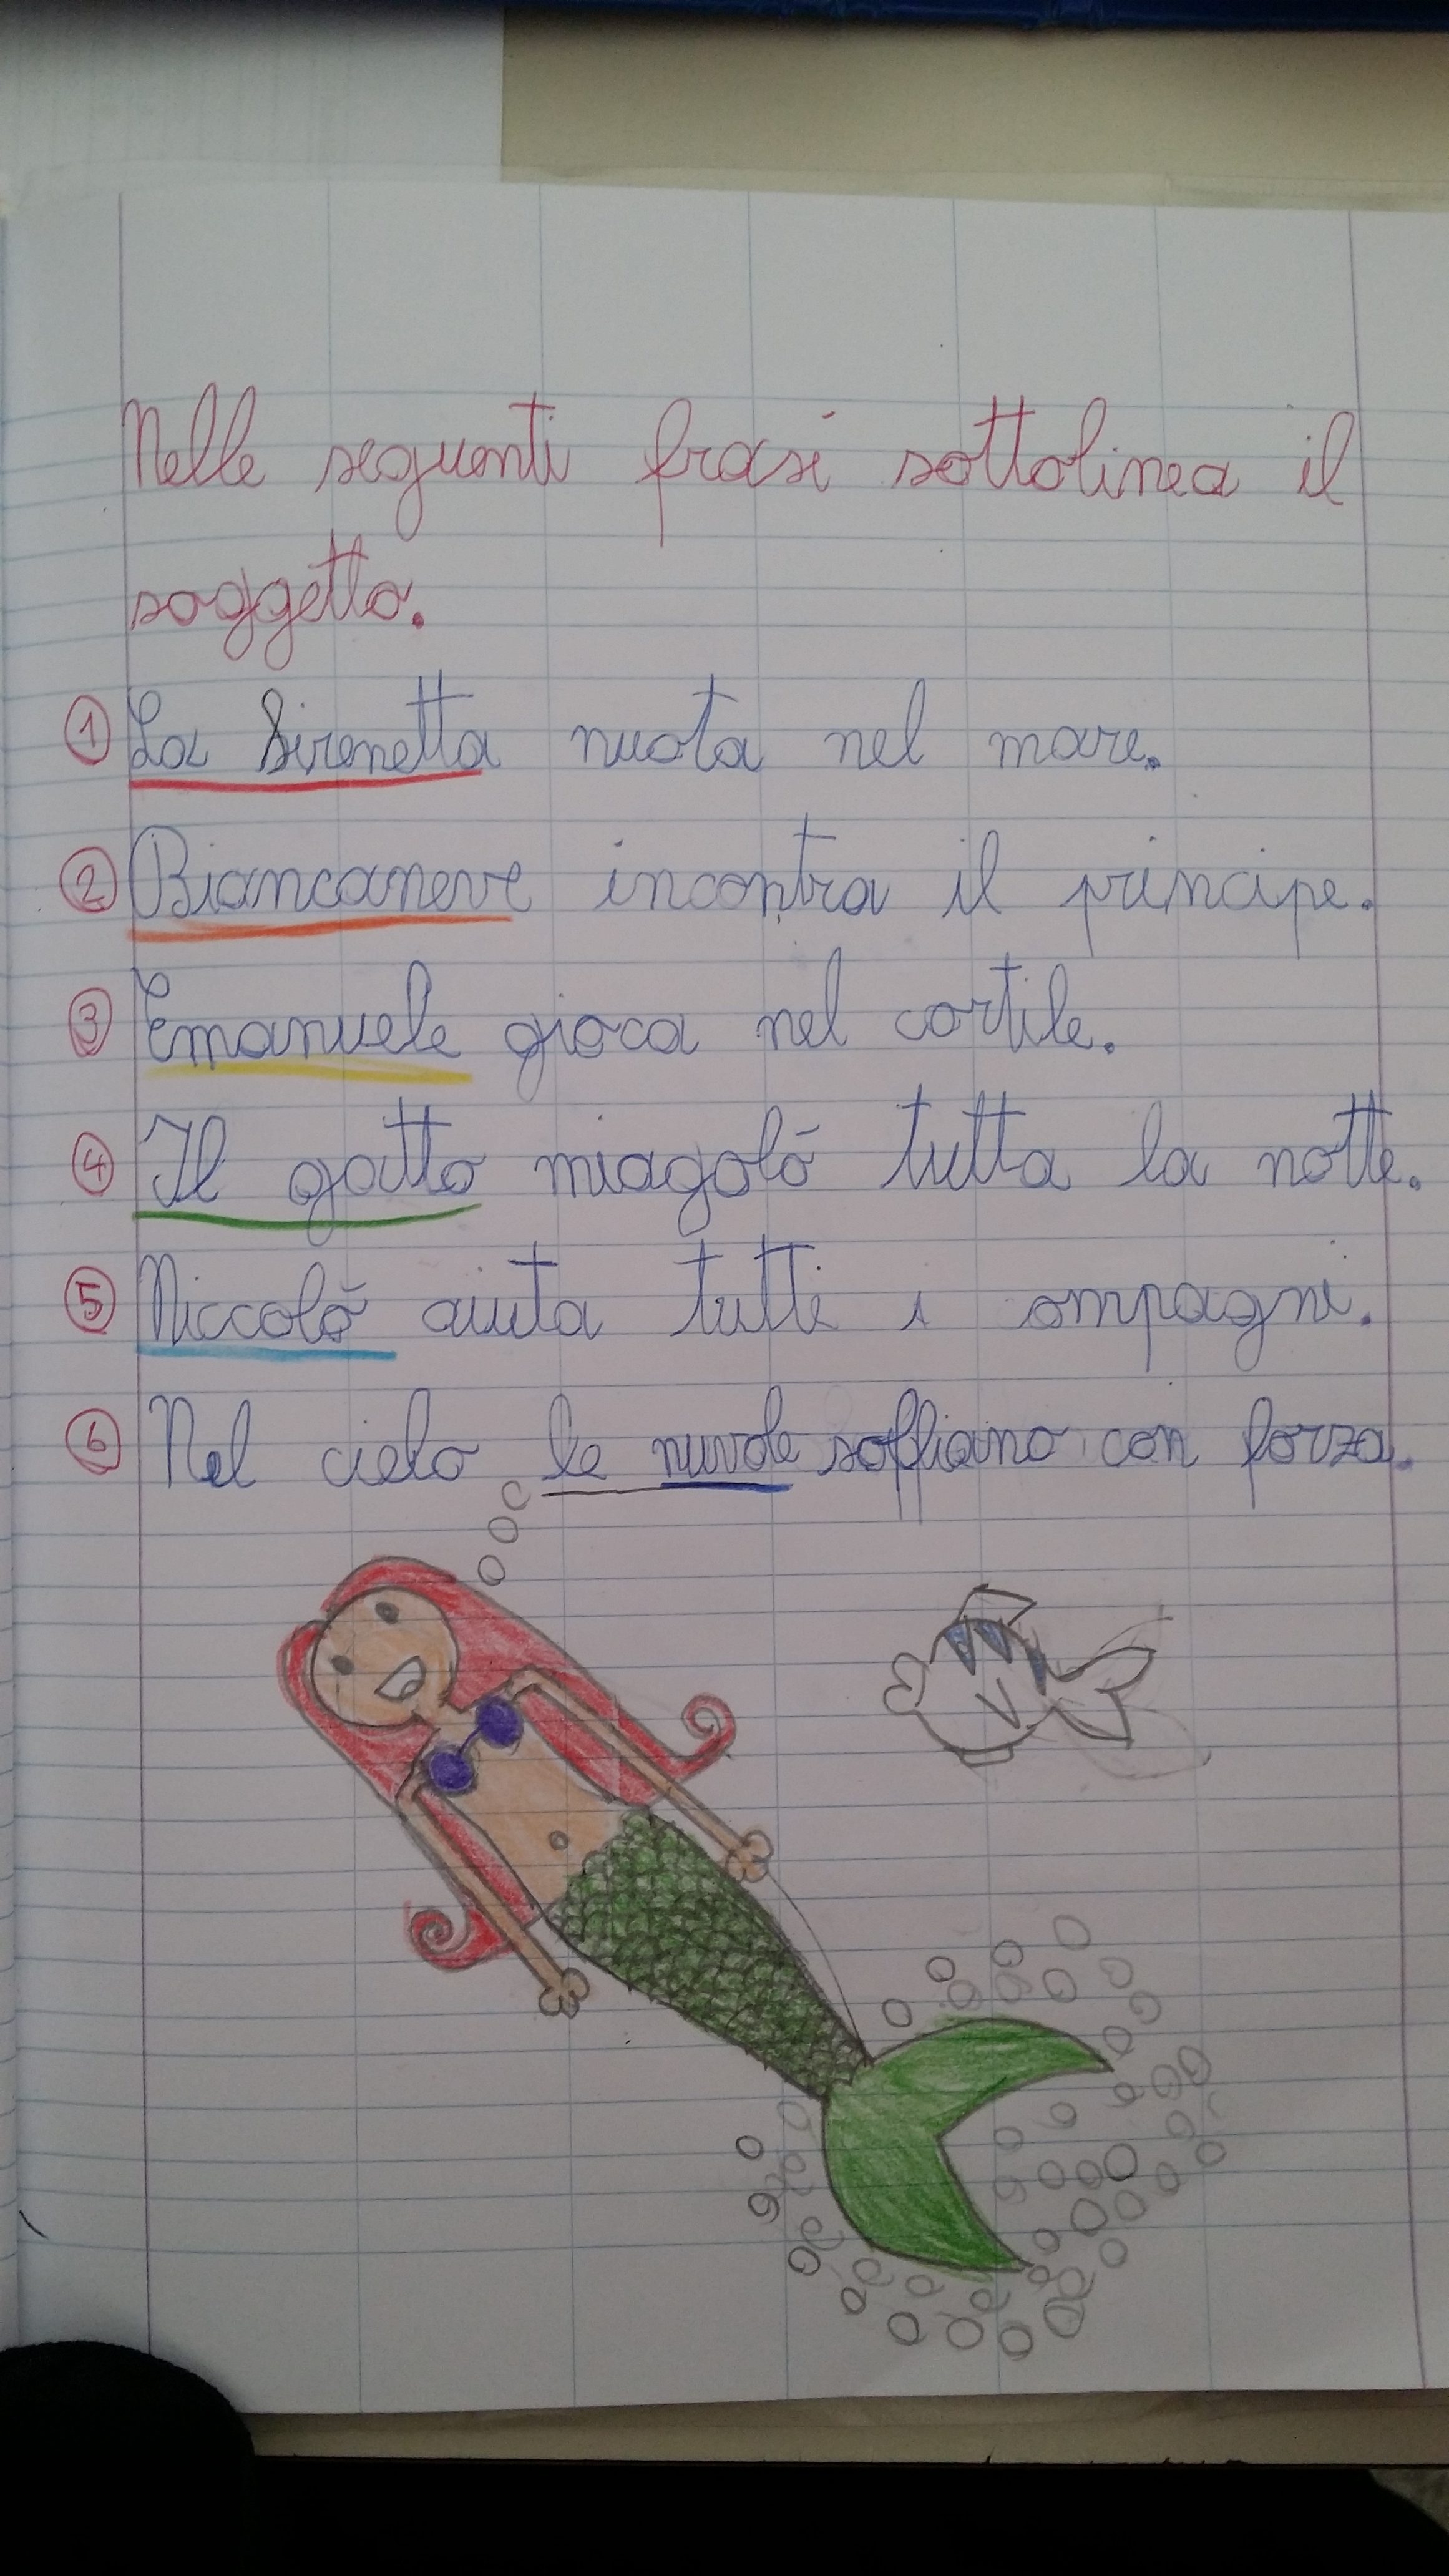 Nelle seguenti frasi sottolinea il
soggetto.
1 La Sirenetta nuota nel mare.
2 Biancaneve incontra il principe.
3 Emanuele gioca nel cortile.
4 Il gatto miagolò tutta la notte.
5 Niccolò aiuta tutti i ompagni.
6 Nel cielo le nuvole soffiano con forza.